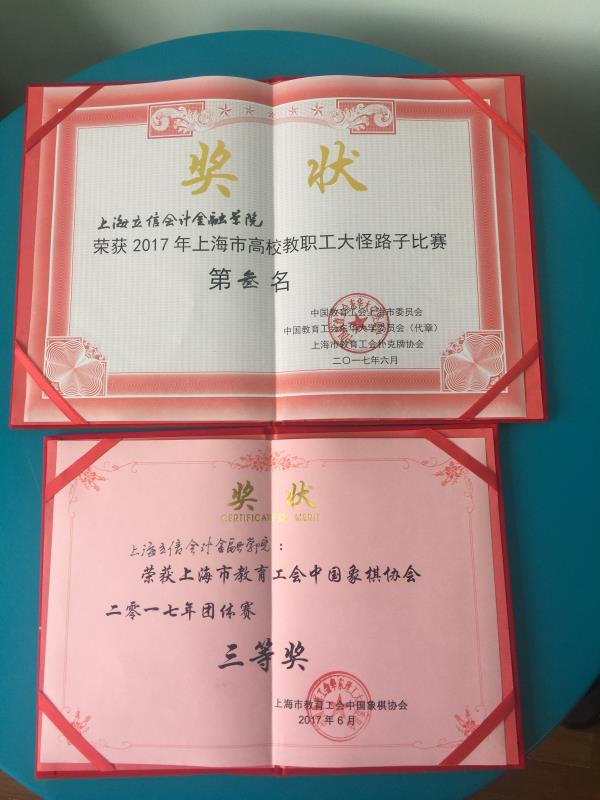 奖 状
上海立信会计金融学院
荣获 2017 年上海市高校教职工大怪路子比赛
第叁名
中国教育工会上海市委员会
中国教育工会东华大学委员会（代章）
上海市教育工会扑克牌协会
二〇一七年六月
奖 状
CERTIFICATE OF MERIT
上海立信会计金融学院：
荣获上海市教育工会中国象棋协会
二零一七年团体赛
三等奖
上海市教育工会中国象棋协会
2017 年 6 月